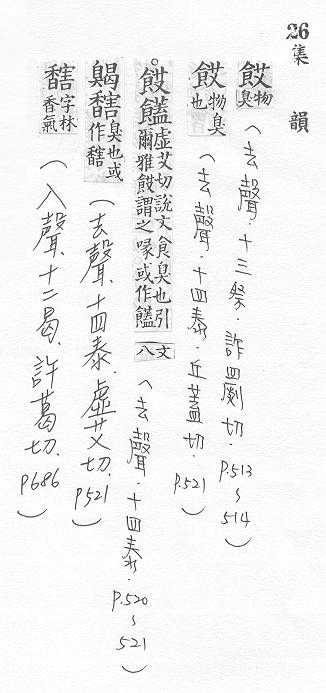 26
集韻
餀物臭(去聲.十三祭.許罽切.P.513~514)
餀物臭也(去聲.十四泰.丘蓋切.P.521)
。餀饚虛艾切說文食臭也引爾雅餀謂之喙或作饚文八(去聲.十四泰.P.520~521)
𪖢𩡋臭也或作𩡋(去聲.十四泰.虛艾切.P521)
字林香氣(入聲.十二曷.許葛切.P686)